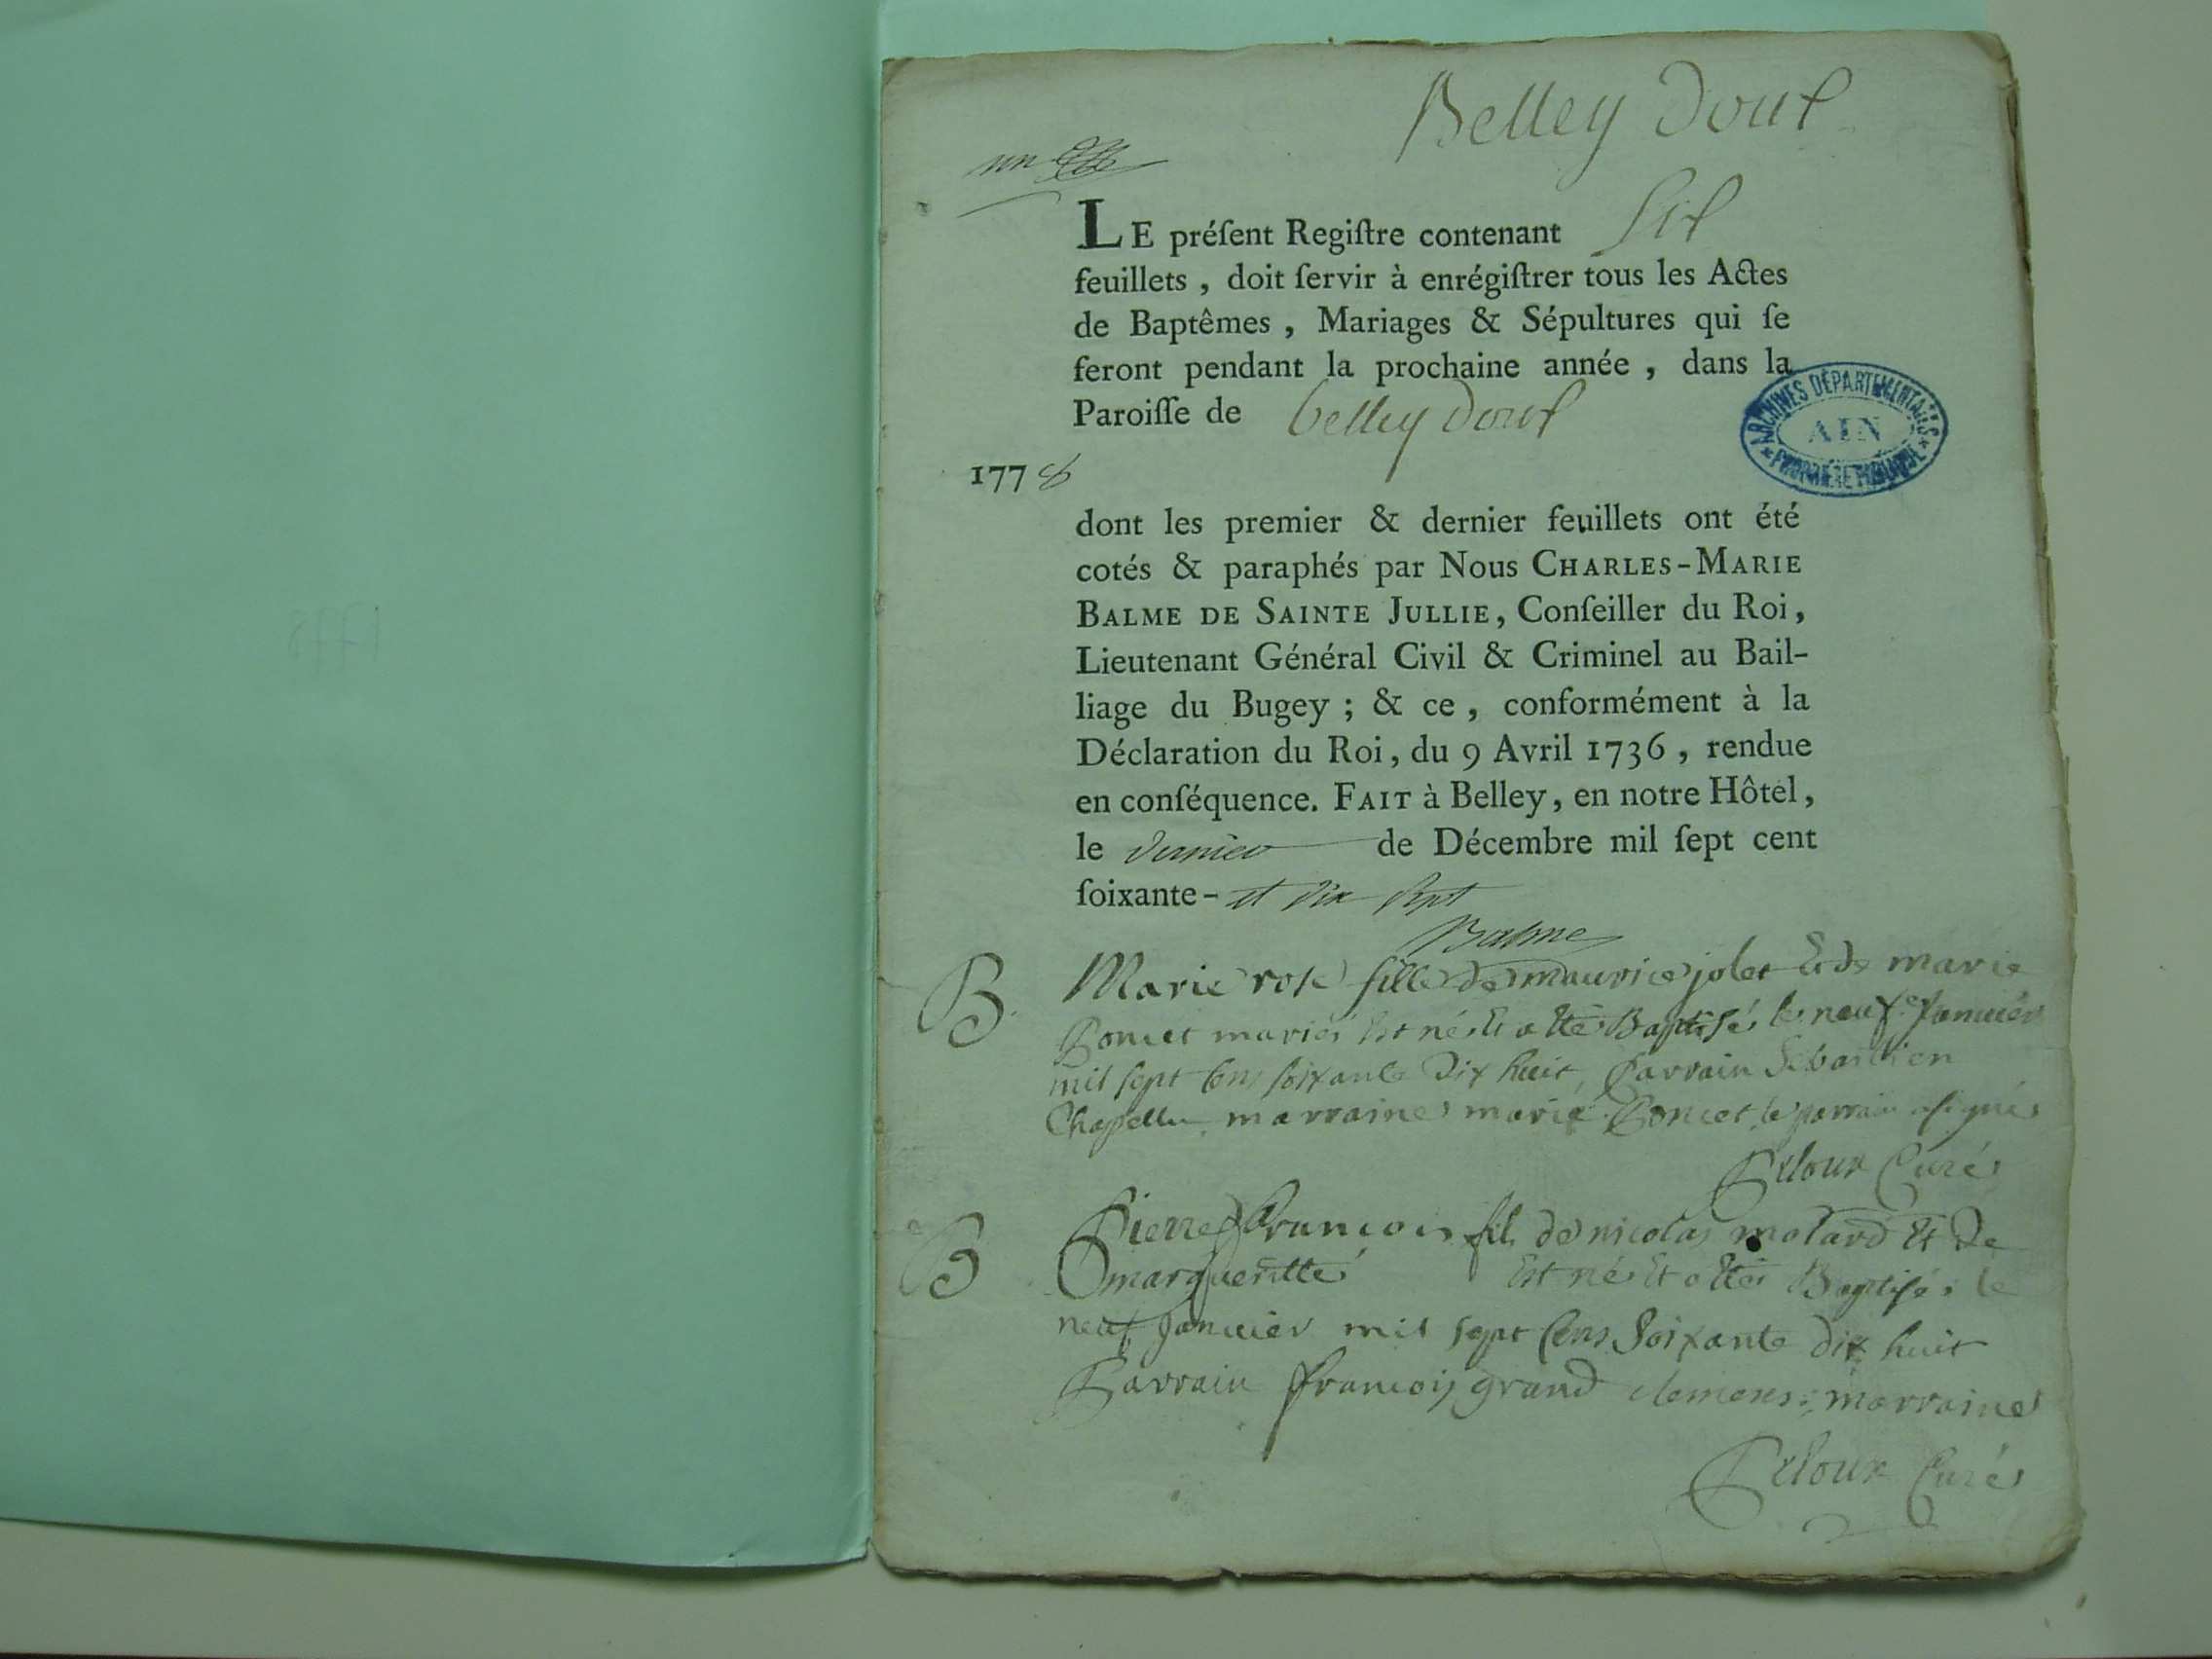 Belley Doux
un
LE préſent Regiſtre contenant Six
feuillets, doit ſervir à enrégiſtrer tous les Actes
de Baptêmes, Mariages & Sépultures qui ſe
feront pendant la prochaine année, dans la
Paroiſſe de belley Doux
ARCHIVES DÉPARTEMENTALES
AIN
1778
dont les premier & dernier feuillets ont été
cotés & paraphés par Nous CHARLES-MARIE
BALME DE SAINTE JULLIE, Conſeiller du Roi,
Lieutenant Général Civil & Criminel au Bail-
liage du Bugey ; & ce, conformément à la
Déclaration du Roi, du 9 Avril 1736, rendue
en conſéquence. FAIT à Belley, en notre Hôtel,
le dernier de Décembre mil ſept cent
ſoixante- et dix Sept
Balme
B Marie rose fille de maurice jolet Et de marie
Poncet mariés Est né Et a Etté Baptisé le neuf Janvier
mil sept Cens soixante Dix huit, Parrain Sebastien
Chapellu marraine marie Poncet le parrain a signé
Peloux Curé
B Pierre François fils de nicolas molard Et De
margueritte Est né Et a Etté Baptisé le
neuf Janvier mil sept Cens Soixante dix huit
Parrain François grand clemens marraine
Peloux Curé
1778